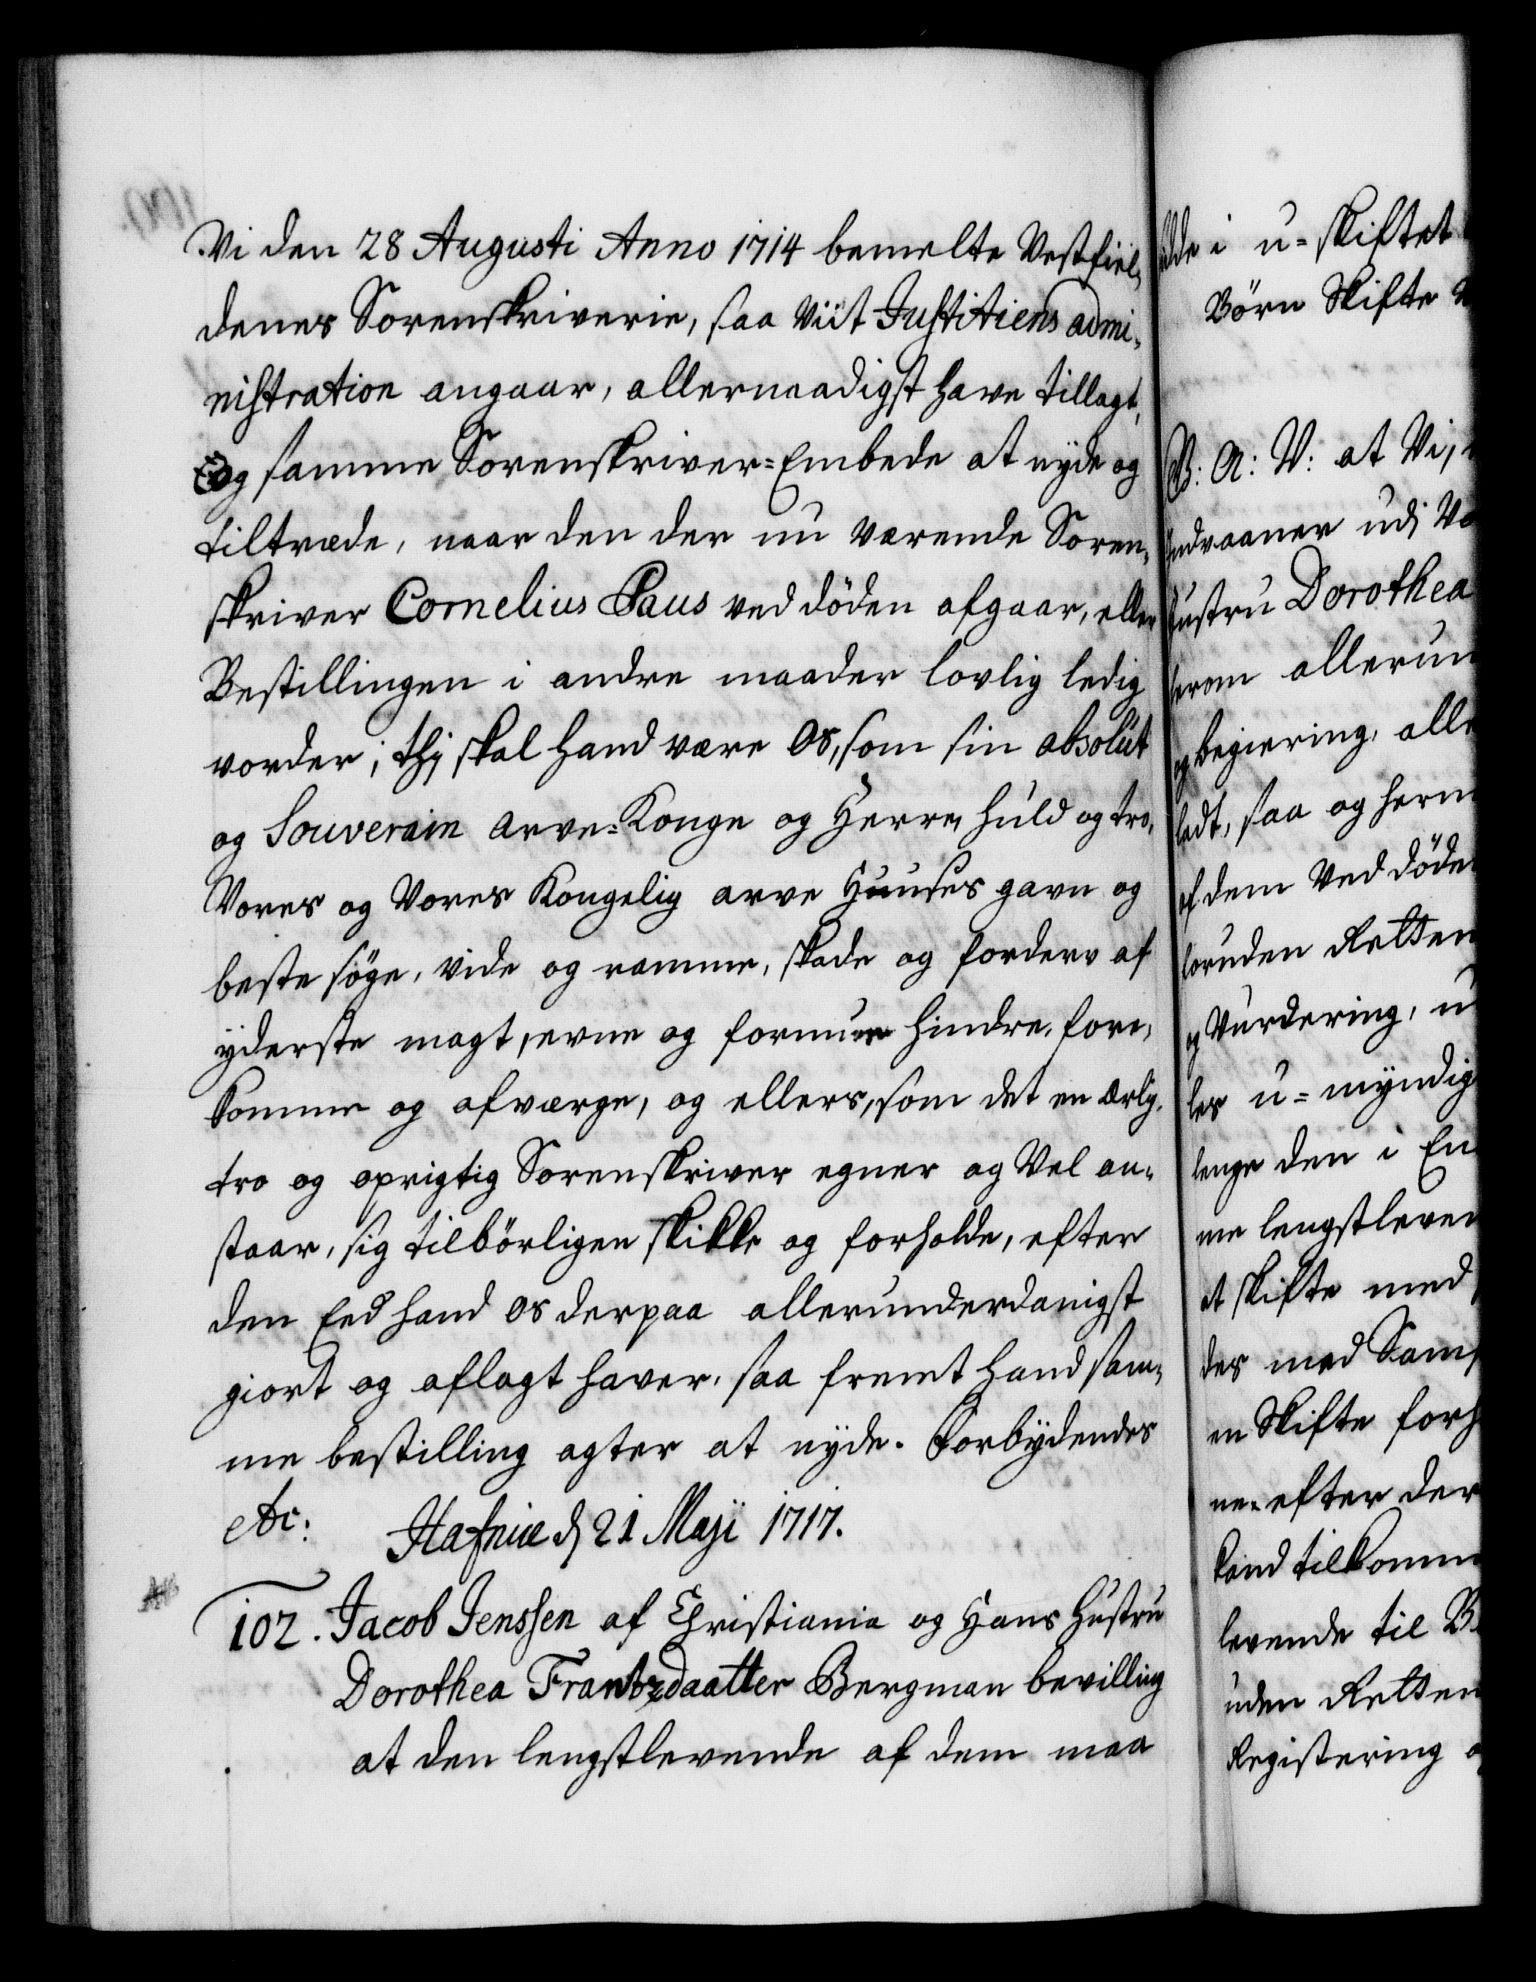 Vi den 28 Augusti Anno 1714 bemelte Vestfiel-
denes Sorenskriverie, saa viit Justitiens admi-
nistration angaar, allernaadigst have tillagt,
Og samme Sorenskriver-Embede at nyde og
tiltræde, naar den der nu værende Soren-
skriver Cornelius Paus ved döden afgaar, eller
Bestillingen i andre maader lovlig ledig
vorder; thj skal hand være Os, som sin absolut
og Souverain Arve-Konge og Herre, huld og tro,
Vores og Vores Kongelig arve Huuses gavn og
beste söge, vide og ramme, skade og forderv af
ÿderste magt, evne og formue hindre, fore-
komme og afværge, og ellers, som det en ærlig,
tro og oprigtig Sorenskriver egner og vel an-
staar, sig tilbörligen skikke og forholde, efter
den Eed hand os derpaa allerunderdanigst
giort og aflagt haver, saa fremt hand sam-
me bestilling agter at nyde. Forbÿdendes
etc: Hafniæ d 21 Maji 1717.
102. Jacob Jenssen af Christiania og Hans Hustru
Dorothea Frantzdaatter Bergman bevilling
at den lengstlevende af dem maa
i u-skiftet
Börn Skifte
G: A: V: at Vi,
Indvaaner udj
Hustru Dorothea
herom allerun
og begiering, alle
ladt, saa og herm
af dem ved döde
foruden Retten
og Vurdering, u
les u-mÿndig
lenge den i En
me lengstleven
at skifte med
des med Sam
en Skifte forh
ne, efter der
kand tilkomm
levende til B
uden Retten
Registering